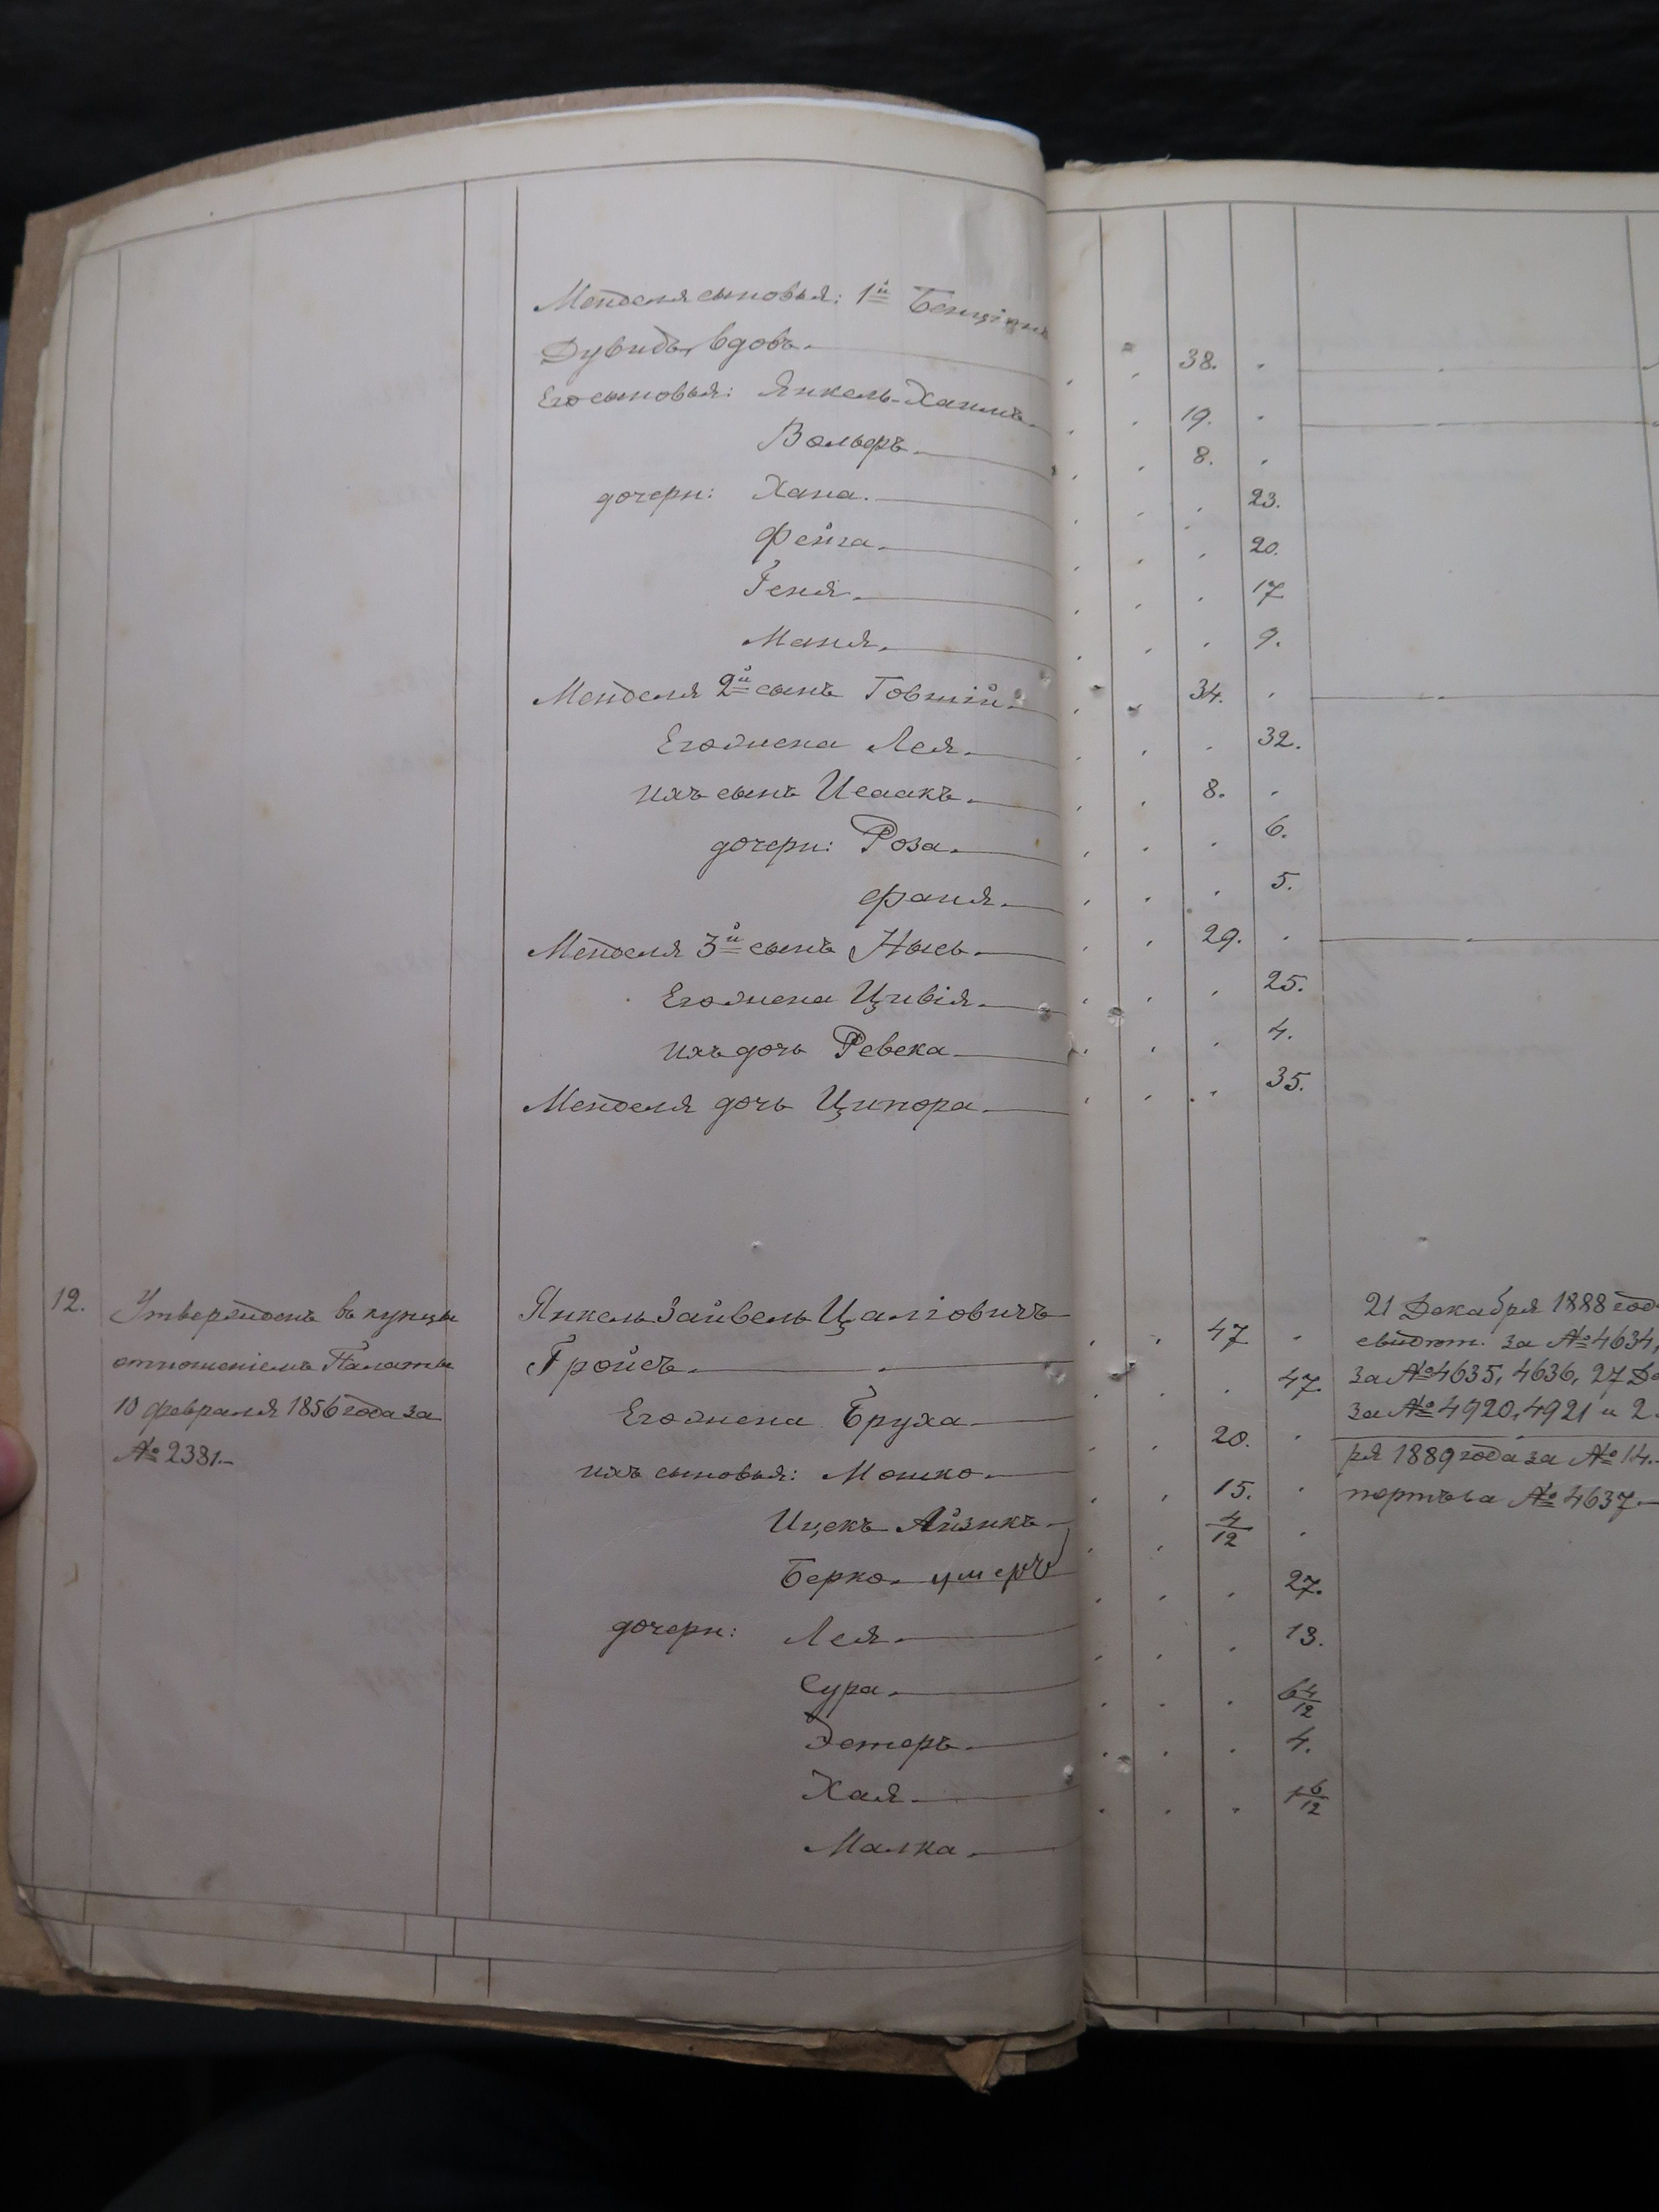 Менделя сыновья: 1й Бенціонъ
Дувидъ, вдовъ. 38.
Его сыновья: Янкель-Хаимъ. 19.
Вольфъ. 8.
дочери: Хана. 23.
Фейга. 20.
Геня. 17
Маня. 9.
Менделя 2й сынъ Говшій. 34.
Его жена Лея. 32.
ихъ сынъ Исаакъ. 8.
дочери: Роза. 6.
Фаня. 5.
Менделя 3й сынъ Нысь. 29.
Его жена Цивія. 25.
ихъ дочь Ревека. 4.
Менделя дочь Ципора. 35.
12. Утвержденъ въ купцы Янкель Зайвель Цалговичъ 21 Декабря 1888 год
отношеніемъ Палаты Гройсъ. 47 свидѣт. за № 4634,
10 февраля 1856 года за Его жена Бруха. 47. за № 4635, 4636, 27 Де
№ 2381. ихъ сыновья: Мошко. 20. за № 4920, 4921 и 2
Ицекъ Айзикъ. 15. ря 1889 года за № 14.
Берко. умеръ 4/12 портъ за № 4637.
дочери: Лея. 27.
Сура. 13.
Эстеръ. 6 4/12
Хая. 4.
Малка. 1 6/12